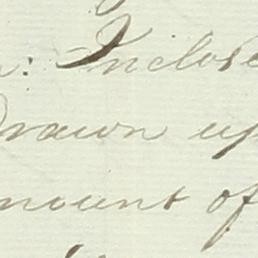 : Inclose
Drawn up
mount of